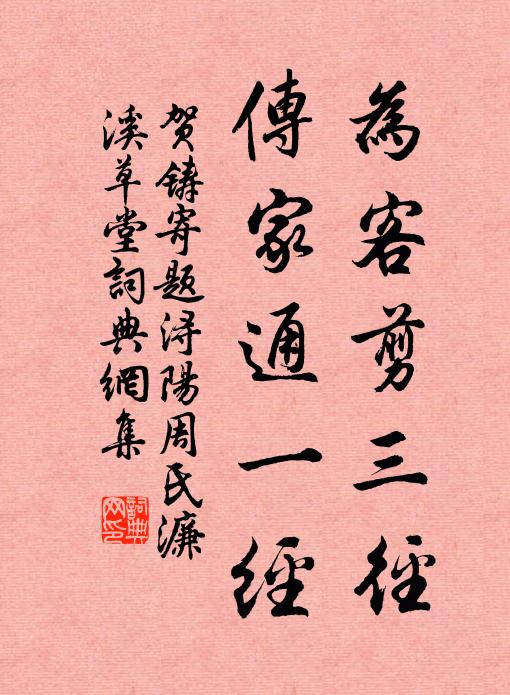 為客剪三徑
傳家通一經
贺鑄寄題潯陽周氏濂
溪草堂詞典網集
詞典网印